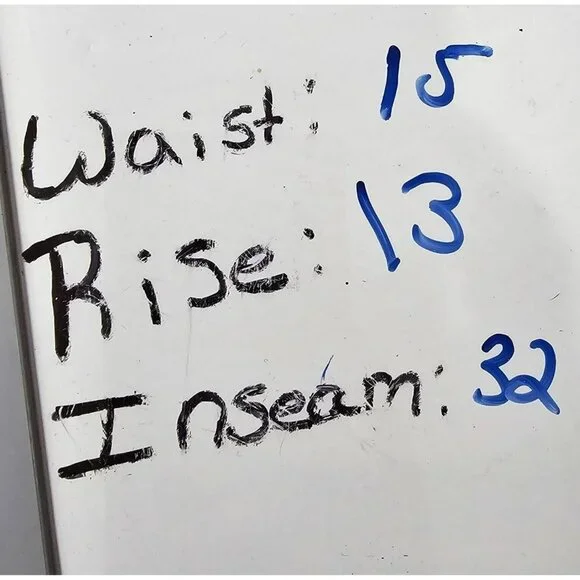 Waist: 15
Rise: 13
Inseam: 32